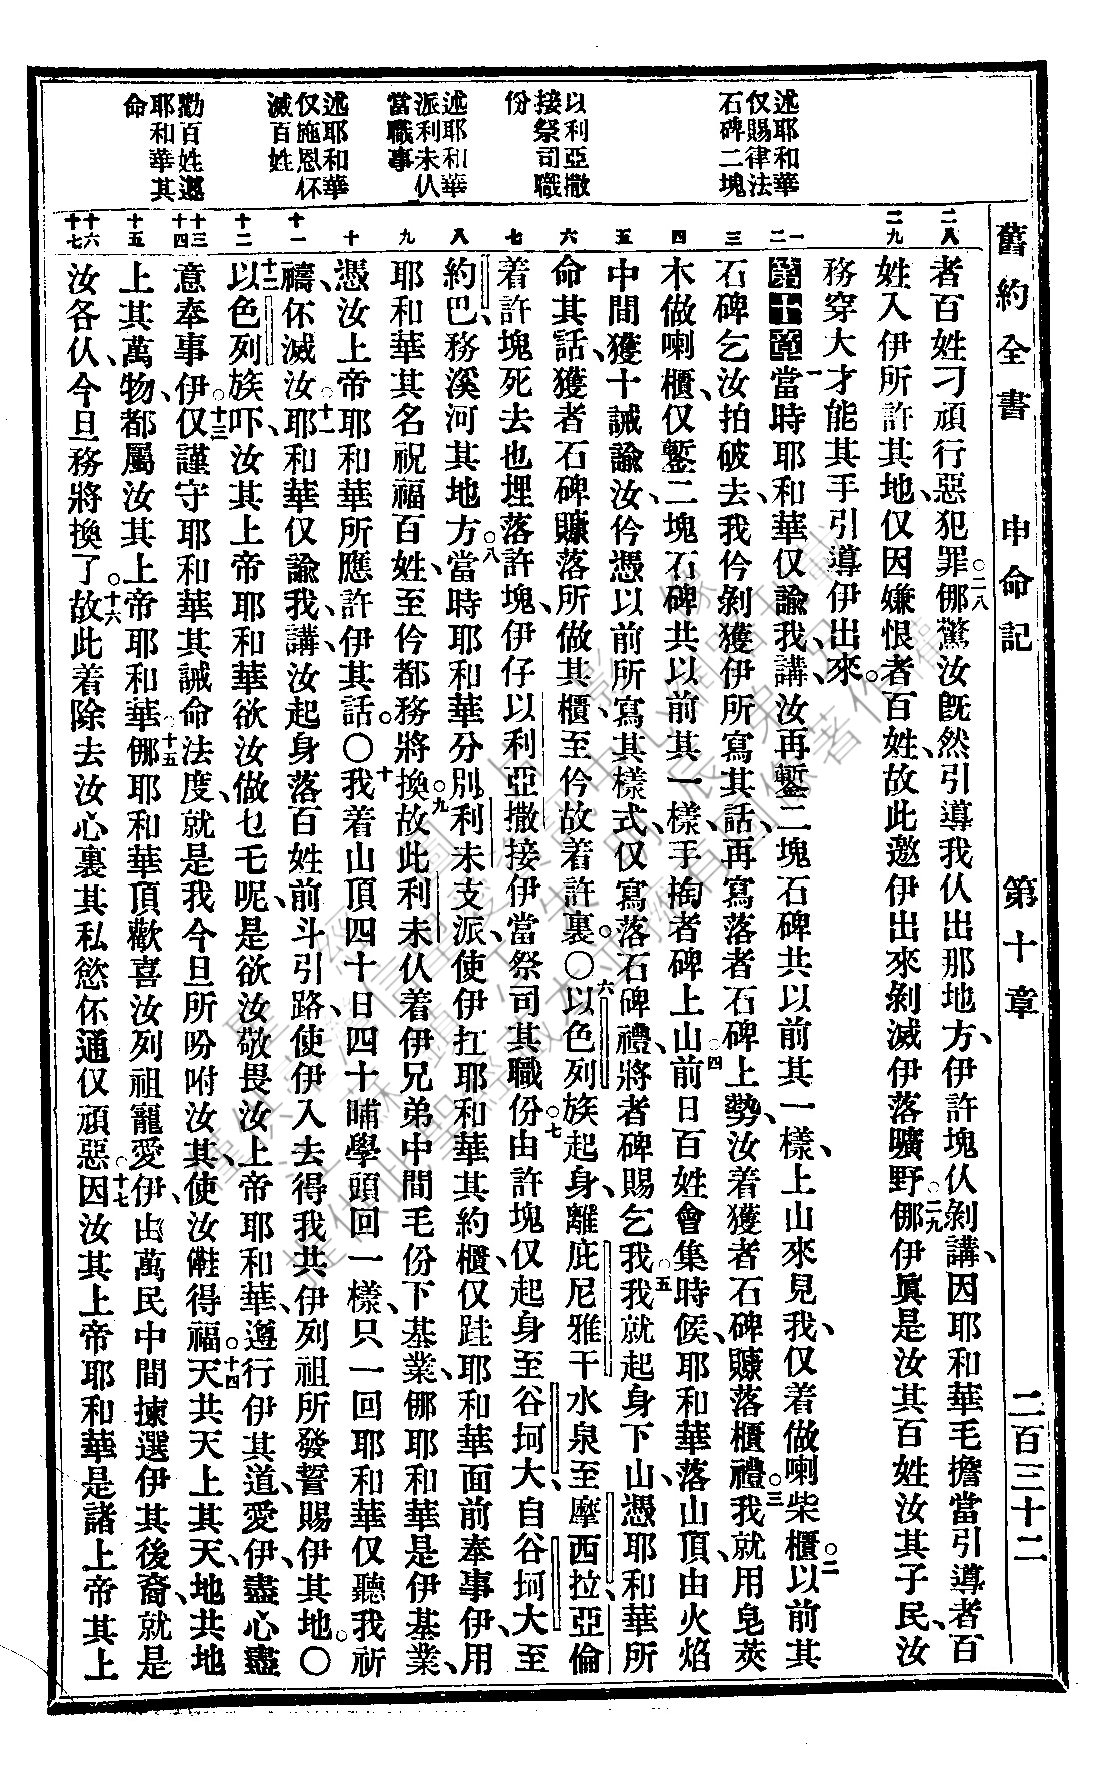 舊約全書 申命記 第十章 二百三十二
述耶和華
仅賜律法
石碑二塊
以利亞撒
接祭司職
份
述耶和華
派利未仈
當職事
述耶和華
仅施恩伓
滅百姓
勸百姓遵
耶和華其
命
二八
二九
一
二
三
四
五
六
七
八
九
十
十一
十二
十三
十四
十五
十六
十七
者百姓刁頑行惡犯罪○二八㑚驚汝旣然引導我仈出那地方、伊許塊仈剝講、因耶和華毛擔當引導者百
姓入伊所許其地、仅因嫌恨者百姓、故此邀伊出來剝滅伊落曠野○二九㑚伊眞是汝其百姓汝其子民、汝
務穿大才能其手引導伊出來。
第十章 一當時耶和華仅諭我講、汝再鏨二塊石碑共以前其一樣、上山來見我、仅着做喇柴櫃○二以前其
石碑乞汝拍破去、我仱剝獲伊所寫其話、再寫落者石碑上勢、汝着獲者石碑賺落櫃禮○三我就用皂莢
木做喇櫃、仅鏨二塊石碑共以前其一樣、手掏者碑上山○四前日百姓會集時候、耶和華落山頂、由火焰
中間獲十誡諭汝、仱憑以前所寫其樣式、仅寫落石碑禮、將者碑賜乞我○五我就起身下山、憑耶和華所
命其話、獲者石碑賺落所做其櫃、至仱故着許裏。○六以色列族起身、離庇尼雅干水泉至摩西拉、亞倫
着許塊死去、也埋落許塊、伊仔以利亞撒接伊當祭司其職份○七由許塊仅起身至谷珂大、自谷珂大至
約巴、務溪河其地方○八當時耶和華分別利未支派、使伊扛耶和華其約櫃、仅跬耶和華面前奉事伊、用
耶和華其名祝福百姓、至仱都務將換○九故此利未仈着伊兄弟中間毛份下基業、㑚耶和華是伊基業、
憑汝上帝耶和華所應許伊其話。○十我着山頂四十日四十晡、學頭回一樣、只一回耶和華仅聽我祈
禱、伓滅汝○十一耶和華仅諭我講、汝起身落百姓前斗引路、使伊入去得我共伊列祖所發誓賜伊其地。○
十二以色列族吓、汝其上帝耶和華欲汝做乜乇呢、是欲汝敬畏汝上帝耶和華、遵行伊其道、愛伊、盡心盡
意奉事伊○十三仅謹守耶和華其誡命法度、就是我今旦所吩咐汝其、使汝㑻得福○十四天共天上其天、地共地
上其萬物、都屬汝其上帝耶和華○十五㑚耶和華頂歡喜汝列祖寵愛伊、由萬民中間揀選伊其後裔、就是
汝各仈、今旦務將換了○十六故此着除去汝心裏其私慾、伓通仅頑惡○十七因汝其上帝耶和華是諸上帝其上